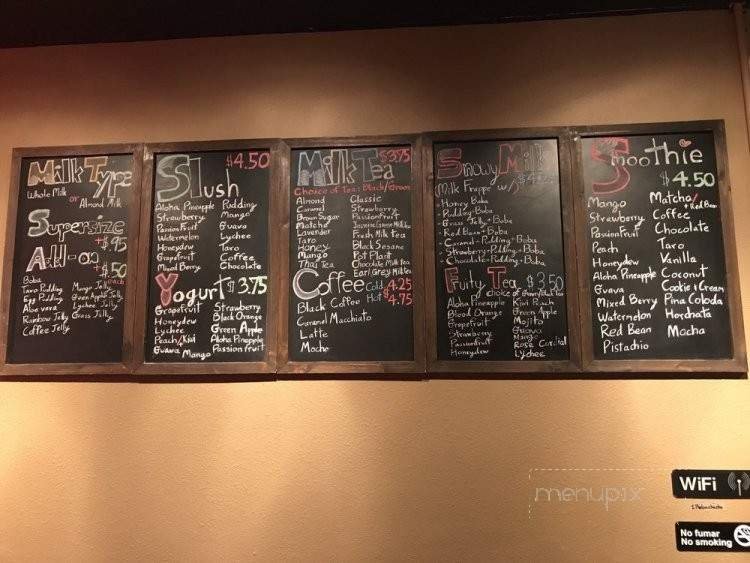 Milk Type
Whole Milk
or
Almond Milk
Supersize
+$.95
Add-on
+$.50
each
Boba
Taro Pudding
Egg Pudding
Aloe vera
Rainbow Jelly
Coffee Jelly
Mango Jelly
Green Apple Jelly
Lychee Jelly
Grass Jelly
Slush
$4.50
Aloha Pineapple
Strawberry
Passion Fruit
Watermelon
Honeydew
Grapefruit
Mixed Berry
Pudding
Mango
Guava
Lychee
Taro
Coffee
Chocolate
Yogurt $3.75
Grapefruit
Honeydew
Lychee
Peach/Kiwi
Guava
Mango
Strawberry
Blood Orange
Green Apple
Aloha Pineapple
Passion fruit
Milk Tea
$3.75
Choice of Tea: Black/Green
Almond
Caramel
Brown Sugar
Matcha
Lavender
Taro
Honey
Mango
Thai Tea
Classic
Strawberry
Passionfruit
Fresh Milk tea
Black Sesame
Pot Plant
Chocolate Milk Tea
Earl Grey Milk tea
Coffee
Cold 4.25
Hot $4.75
Black Coffee
Caramel Macchiato
Latte
Mocha
Snowy Milk
Milk Frappe w/
Honey Boba
- Pudding + Boba
- Grass Jelly + Boba
- Red Bean + Boba
- Caramel + Pudding + Boba
- Strawberry + Pudding + Boba
- Chocolate + Pudding + Boba
Fruity Tea $3.50
Aloha Pineapple
Blood Orange
Grapefruit
Strawberry
Passionfruit
Honeydew
Kiwi Peach
Green Apple
Mojito
Guava
Mango
Rose Cordial
Lychee
Smoothie
$4.50
Mango
Strawberry
Passion Fruit
Peach
Honeydew
Aloha Pineapple
Guava
Mixed Berry
Watermelon
Red Bean
Pistachio
Matcha/
+ Red Bean
Coffee
Chocolate
Taro
Vanilla
Coconut
Cookie & Cream
Pina Colada
Horchata
Mocha
menupix
WiFi
No fumar
No smoking